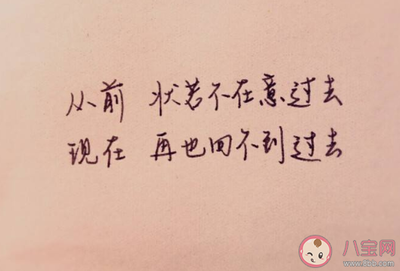 从前 状若不在意过去
现在 再也回不到过去
八宝网
www.8bb.com